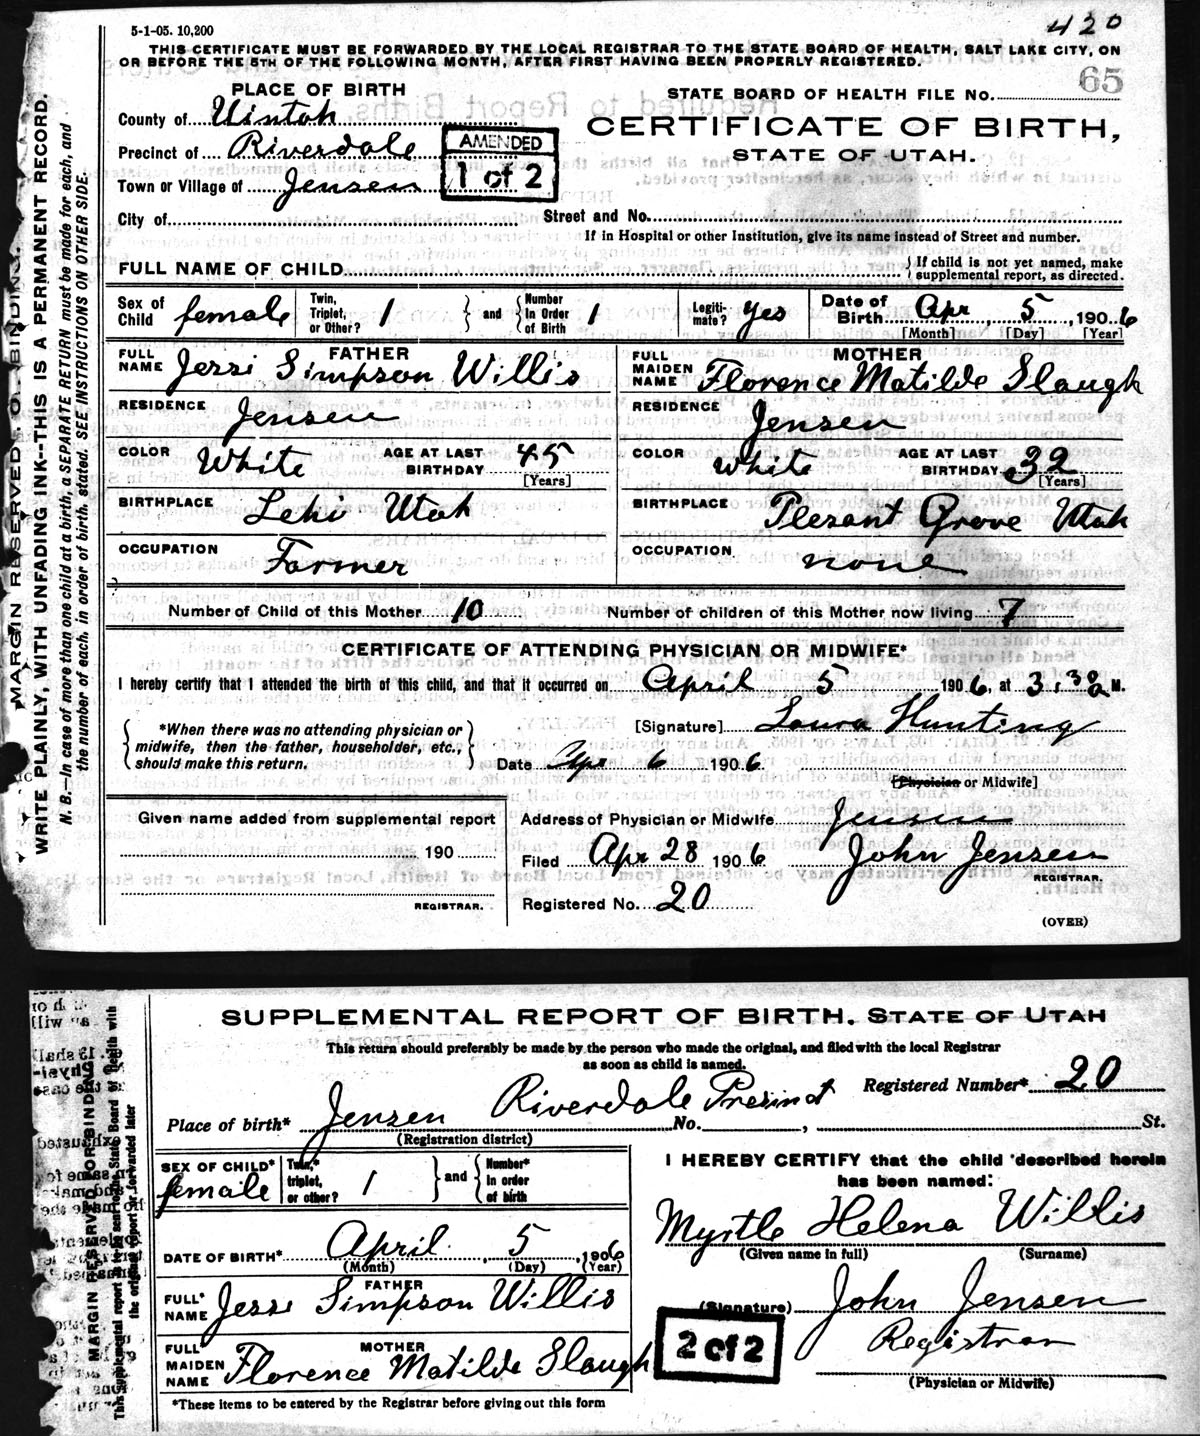 5-1-05. 10,200
420
THIS CERTIFICATE MUST BE FORWARDED BY THE LOCAL REGISTRAR TO THE STATE BOARD OF HEALTH, SALT LAKE CITY, ON
OR BEFORE THE 5TH OF THE FOLLOWING MONTH, AFTER FIRST HAVING BEEN PROPERLY REGISTERED.
PLACE OF BIRTH
STATE BOARD OF HEALTH FILE No. 65
County of Uintah
CERTIFICATE OF BIRTH,
Precinct of Riverdale
AMENDED
STATE OF UTAH.
Town or Village of Jensen
1 of 2
City of
Street and No.
If in Hospital or other Institution, give its name instead of Street and number.
FULL NAME OF CHILD
If child is not yet named, make
supplemental report, as directed.
Sex of Child female
Twin, Triplet, or Other? 1 and Number In Order of Birth 1
Legiti-mate? yes
Date of Birth Apr 5, 1906
[Month] [Day] [Year]
FATHER
MOTHER
FULL NAME Jessi Simpson Willis
FULL MAIDEN NAME Florence Matilde Slaugh
RESIDENCE Jensen
RESIDENCE Jensen
COLOR White AGE AT LAST BIRTHDAY 45
[Years]
COLOR White AGE AT LAST BIRTHDAY 32
[Years]
BIRTHPLACE Lehi Utah
BIRTHPLACE Plesant Grove Utah
OCCUPATION Farmer
OCCUPATION none
Number of Child of this Mother 10 Number of children of this Mother now living 7
CERTIFICATE OF ATTENDING PHYSICIAN OR MIDWIFE*
I hereby certify that I attended the birth of this child, and that it occurred on April 5 1906, at 3:30 a M.
*When there was no attending physician or
midwife, then the father, householder, etc.,
should make this return.
[Signature] Laura Hunting
Date Apr 6 1906
[Physician or Midwife]
Given name added from supplemental report
190
REGISTRAR.
Address of Physician or Midwife Jensen
Filed Apr 28 1906 John Jensen
REGISTRAR.
Registered No. 20
(OVER)
MARGIN RESERVED FOR BINDING.
WRITE PLAINLY, WITH UNFADING INK---THIS IS A PERMANENT RECORD.
N. B.—In case of more than one child at a birth, a SEPARATE RETURN must be made for each, and
the number of each, in order of birth, stated. SEE INSTRUCTIONS ON OTHER SIDE.
SUPPLEMENTAL REPORT OF BIRTH. STATE OF UTAH
This return should preferably be made by the person who made the original, and filed with the local Registrar
as soon as child is named.
Registered Number* 20
Place of birth* Jensen Riverdale Presinct No. , St.
(Registration district)
SEX OF CHILD* female
Twin,* triplet, or other? 1 and Number* in order of birth
I HEREBY CERTIFY that the child described herein
has been named:
Myrtle Helena Willis
(Given name in full) (Surname)
DATE OF BIRTH* April 5, 1906
(Month) (Day) (Year)
FATHER
FULL* NAME Jessi Simpson Willis
(Signature) John Jensen
Registrar
(Physician or Midwife)
MOTHER
FULL* MAIDEN NAME Florence Matilde Slaugh
2 of 2
*These items to be entered by the Registrar before giving out this form
MARGIN RESERVED FOR BINDING
This supplemental report is to be sent to the State Board of Health with
the original report or forwarded later